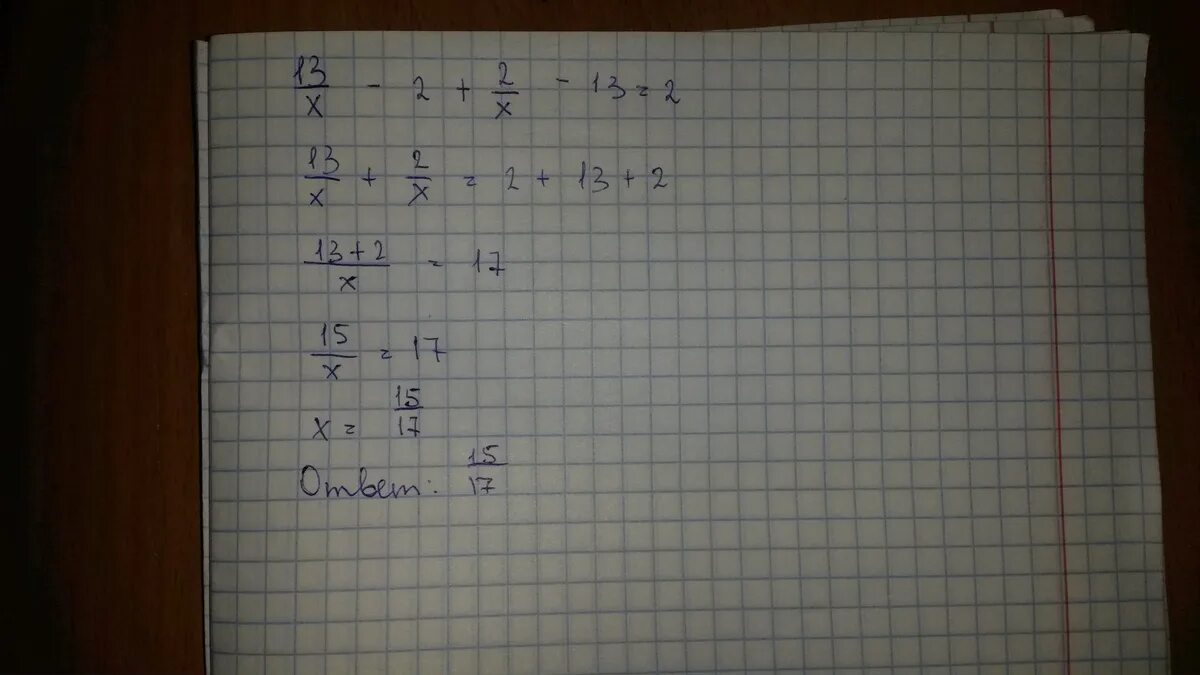 13/x - 2 + 2/x - 13 = 2
13/x + 2/x = 2 + 13 + 2
13+2/x = 17
15/x = 17
x = 15/17
Ответ: 15/17